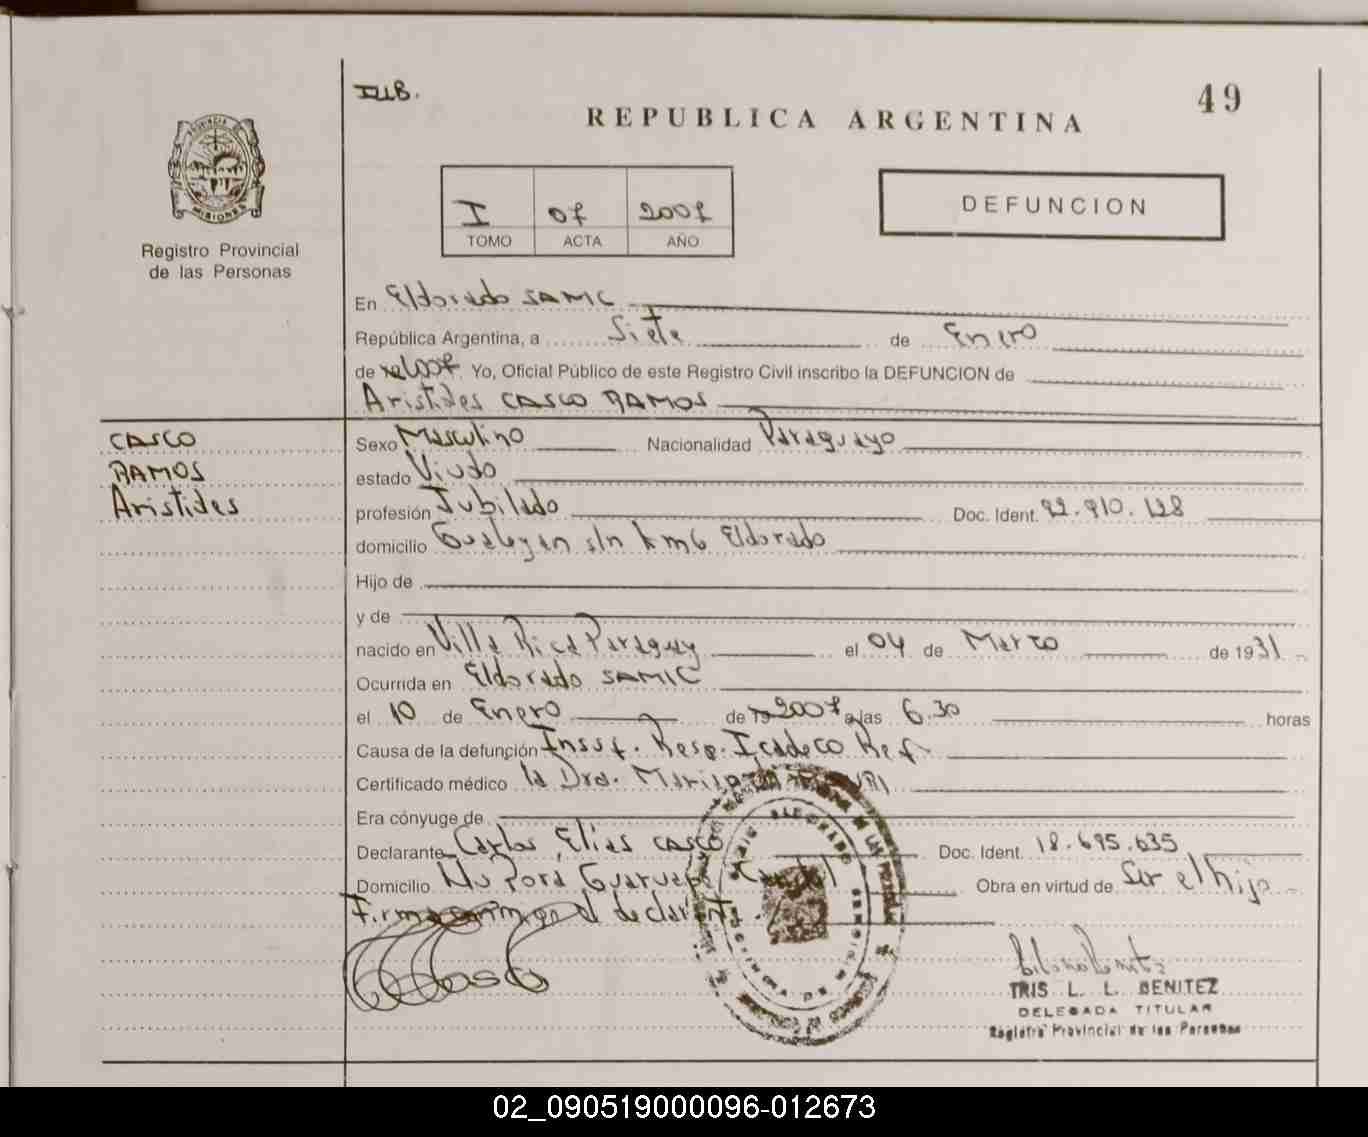 49
REPUBLICA ARGENTINA
PROVINCIA
MISIONES
Registro Provincial
de las Personas
I 07 2007
TOMO ACTA AÑO
DEFUNCION
En Eldorado SAMIC
República Argentina, a Siete de Enero
de 2007. Yo, Oficial Público de este Registro Civil inscribo la DEFUNCION de
Aristides CASCO RAMOS
CASCO
RAMOS
Aristides
Sexo Masculino Nacionalidad Paraguayo
estado Viudo
profesión Jubilado Doc. Ident. 92.910.128
domicilio s/n km6 Eldorado
Hijo de
y de
nacido en Villa Rica Paraguay el 04 de Marzo de 1931
Ocurrida en Eldorado SAMIC
el 10 de Enero de 19 2007 a las 6.30 horas
Causa de la defunción Insuf. Resp.
Certificado médico la Dra.
Era cónyuge de
Declarante Carlos Elias CASCO Doc. Ident. 18.695.635
Domicilio Obra en virtud de Ser el hijo
Firma el declarante.
Casco
IRIS L. L. BENITEZ
DELEGADA TITULAR
Registro Provincial de las Personas
02_090519000096-012673